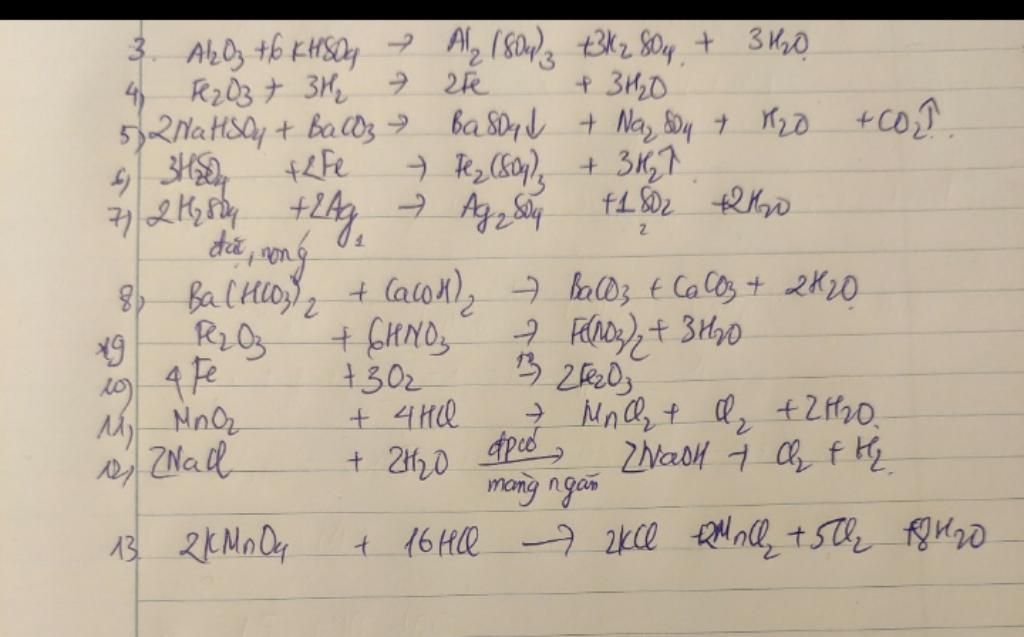 3. Al2O3 + 6 KHSO4 → Al2(SO4)3 + 3K2SO4 + 3H2O
4) Fe2O3 + 3H2 → 2Fe + 3H2O
5) 2NaHSO4 + BaCO3 → BaSO4↓ + Na2SO4 + H2O + CO2↑.
6) 3H2SO4 + 2Fe → Fe2(SO4)3 + 3H2↑
7) 2H2SO4 + 2Ag → Ag2SO4 + 1SO2 + 2H2O
đặc, nóng 1 2
8) Ba(HCO3)2 + Ca(OH)2 → BaCO3 + CaCO3 + 2H2O
*9 Fe2O3 + 6HNO3 → Fe(NO3)2 + 3H2O
10) 4Fe + 3O2 → 2Fe2O3
11) MnO2 + 4HCl → MnCl2 + Cl2 + 2H2O.
12) 2NaCl + 2H2O đpcó → 2NaOH + Cl2 + H2.
màng ngăn
13. 2KMnO4 + 16HCl → 2KCl + 2MnCl2 + 5Cl2 + 8H2O